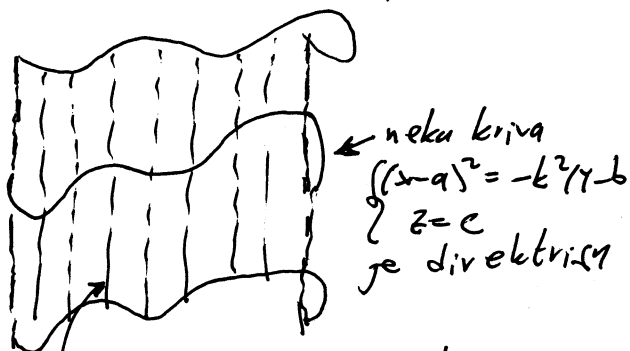 neka kriva
{(x-a)² = -k²(y-b
z=c
je direktrisa